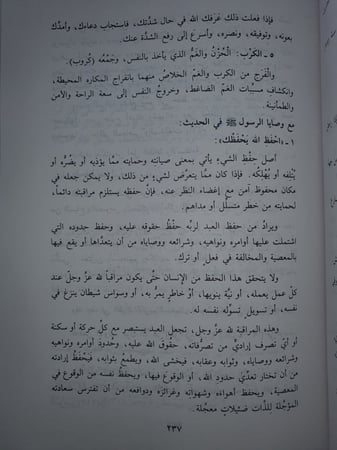 فإذا فعلت ذلك عَرَفك الله في حال شدَّتك، فاستجاب دعاءك، وأمدَّك
بعونه، وتوفيقه، ونصره، وأسرع إلى رفع الشدَّة عنك.
٥ - الكرْب: الحُزْنُ والغمُّ الذي يأخذ بالنفس، وجَمْعُه (كُروب).
والفَرَج من الكرب والغمّ الخلاصُ منهما بانفراج المكاره المحيطة،
وانكشاف مسبِّبات الغمّ الضاغط، وخروجُ النفس إلى سعة الراحة والأمن
والطمأنينة.
مع وصايا الرسول ﷺ في الحديث:
١ - «احْفَظِ الله يَحْفَظْكَ»:
أصل حِفْظِ الشيء يأتي بمعنى صيانته وحمايته ممَّا يؤذيه أو يضُرُّه أو
يُتْلِفه أو يُهْلِكُه. فإذا كان ممَّا يتعرَّض لشيء من ذلك، ولا يمكن جعله في
مكان محفوظ آمن مع إغضاء النظر عنه، فإنَّ حفظه يستلزم مراقبته دائماً،
لحمايته من خطر متسلِّل أو مداهم.
ويرادُ من حفظ العبد لربِّه حِفْظُ حقوقه عليه، وحفظ حدوده التي
اشتملت عليها أوامره ونواهيه، وشرائعه ووصاياه من أن يتعدَّاها أو يقع فيها
بالمعصية والمخالفة في فعل أو ترك.
ولا يتحقق هذا الحفظ من الإنسان حتَّى يكون مراقباً لله عزَّ وجل عند
كلّ عمل يعمله، أو نيَّة ينويها، أو خاطر يمرُّ به، أو وسواس شيطان ينزغ في
نفسه، أو تسويل تسوِّله نفسه له.
وهذه المراقبة لله عزَّ وجل، تجعل العبد يستبصر مع كلِّ حركة أو سكنة
أو أيّ تصرف إراديّ من تصرفاته، حقوق الله عليه، وحدودَ أوامره ونواهيه
وشرائعه ووصاياه، وثوابه وعقابه، فيخشى الله، ويطمعُ بثوابه، فيَحْفَظُ إرادته
من أن تختار تعدِّيَ حدود الله، أو الوقوع فيها، ويحفظ نفسه من الوقوع في
المعصية، ويحفظ أهواءه وشهواته وغرائزه ودوافعه من أن تفترس سعادته
المؤجَّلة للذَّات ضئيلات معجَّلة.
٢٣٧